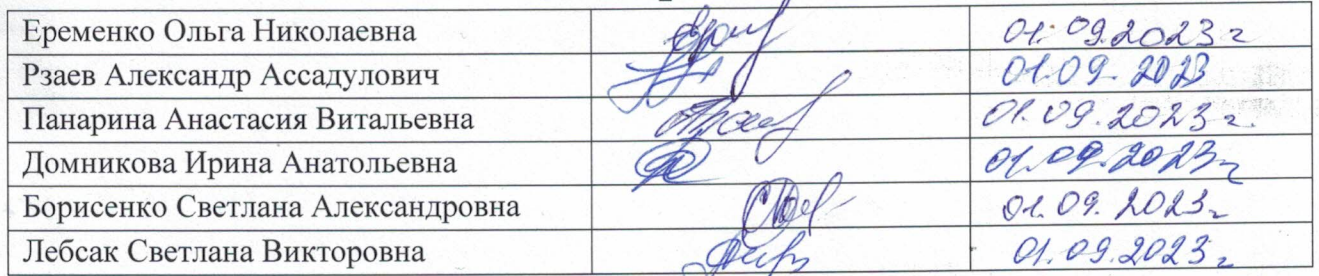 Еременко Ольга Николаевна 01.09.2023г
Рзаев Александр Ассадулович 01.09.2023
Панарина Анастасия Витальевна 01.09.2023г.
Домникова Ирина Анатольевна 01.09.2023г
Борисенко Светлана Александровна 01.09.2023г
Лебсак Светлана Викторовна 01.09.2023г